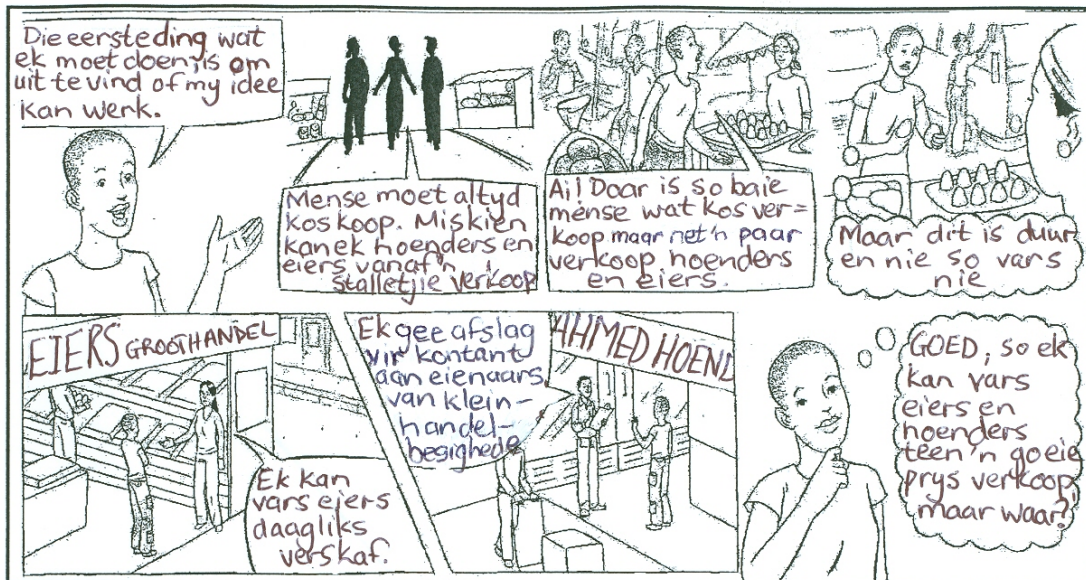 Die eerste ding wat
ek moet doen, is om
uit te vind of my idee
kan werk.
Mense moet altyd
kos koop. Miskien
kan ek hoenders en
eiers vanaf 'n
stalletjie verkoop
Ai! Daar is so baie
mense wat kos ver=
koop maar net 'n paar
verkoop hoenders
en eiers.
Maar dit is duur
en nie so vars
nie
EIERS GROOTHANDEL
Ek kan
vars eiers
daagliks
verskaf.
Ek gee afslag
vir kontant
aan eienaars
van klein-
handel-
besighede
AHMED HOEND
GOED, so ek
kan vars
eiers en
hoenders
teen 'n goeie
prys verkoop,
maar waar?